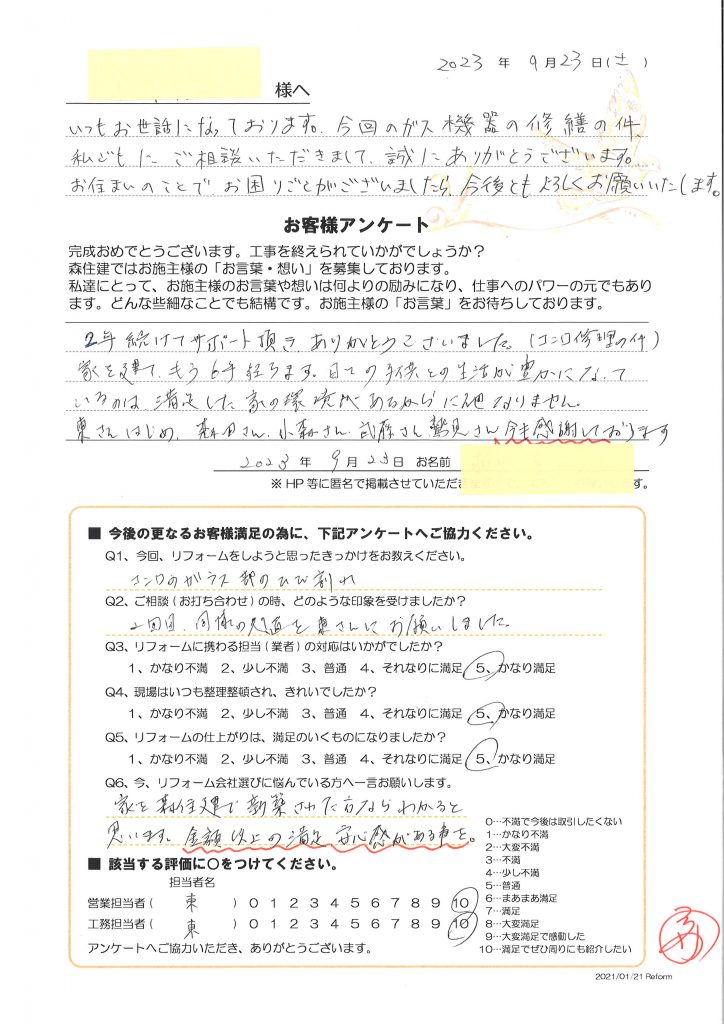 2023 年 9月23日(土)
様へ
いつもお世話になっております。今回のガス機器の修繕の件、
私どもにご相談いただきまして、誠にありがとうございます。
お住まいのことでお困りごとがございましたら、今後ともよろしくお願いいたします。
お客様アンケート
完成おめでとうございます。工事を終えられていかがでしょうか?
森住建ではお施主様の「お言葉・想い」を募集しております。
私達にとって、お施主様のお言葉や想いは何よりの励みになり、仕事へのパワーの元でもあり
ます。どんな些細なことでも結構です。お施主様の「お言葉」をお待ちしております。
2年続けてサポート頂き、ありがとうございました。(コンロ修理の件)
家を建て、もう6年経ちます。日々の子供との生活が豊かになって
いるのは、満足した家の環境があるからに他なりません。
東さんはじめ、森田さん、小森さん、武藤さん、鷲見さん 今も感謝しております
2023 年 9月23日 お名前
※HP等に匿名で掲載させていただき す。
■ 今後の更なるお客様満足の為に、下記アンケートへご協力ください。
Q1、今回、リフォームをしようと思ったきっかけをお教えください。
コンロのガラス部のひび割れ
Q2、ご相談(お打ち合わせ)の時、どのような印象を受けましたか?
2回目、同様の処置を東さんにお願いしました。
Q3、リフォームに携わる担当(業者)の対応はいかがでしたか?
1、かなり不満 2、少し不満 3、普通 4、それなりに満足 5、かなり満足
Q4、現場はいつも整理整頓され、きれいでしたか?
1、かなり不満 2、少し不満 3、普通 4、それなりに満足 5、かなり満足
Q5、リフォームの仕上がりは、満足のいくものになりましたか?
1、かなり不満 2、少し不満 3、普通 4、それなりに満足 5、かなり満足
Q6、今、リフォーム会社選びに悩んでいる方へ一言お願いします。
家を森住建で新築された方ならわかると
思います。金額以上の満足、安心感がある事を。
■ 該当する評価に○をつけてください。
担当者名
営業担当者( 東 )0 1 2 3 4 5 6 7 8 9 10
工務担当者( 東 )0 1 2 3 4 5 6 7 8 9 10
アンケートへご協力いただき、ありがとうございます。
0…不満で今後は取引したくない
1…かなり不満
2…大変不満
3…不満
4…少し不満
5…普通
6…まあまあ満足
7…満足
8…大変満足
9…大変満足で感動した
10…満足でぜひ周りにも紹介したい
2021/01/21 Reform